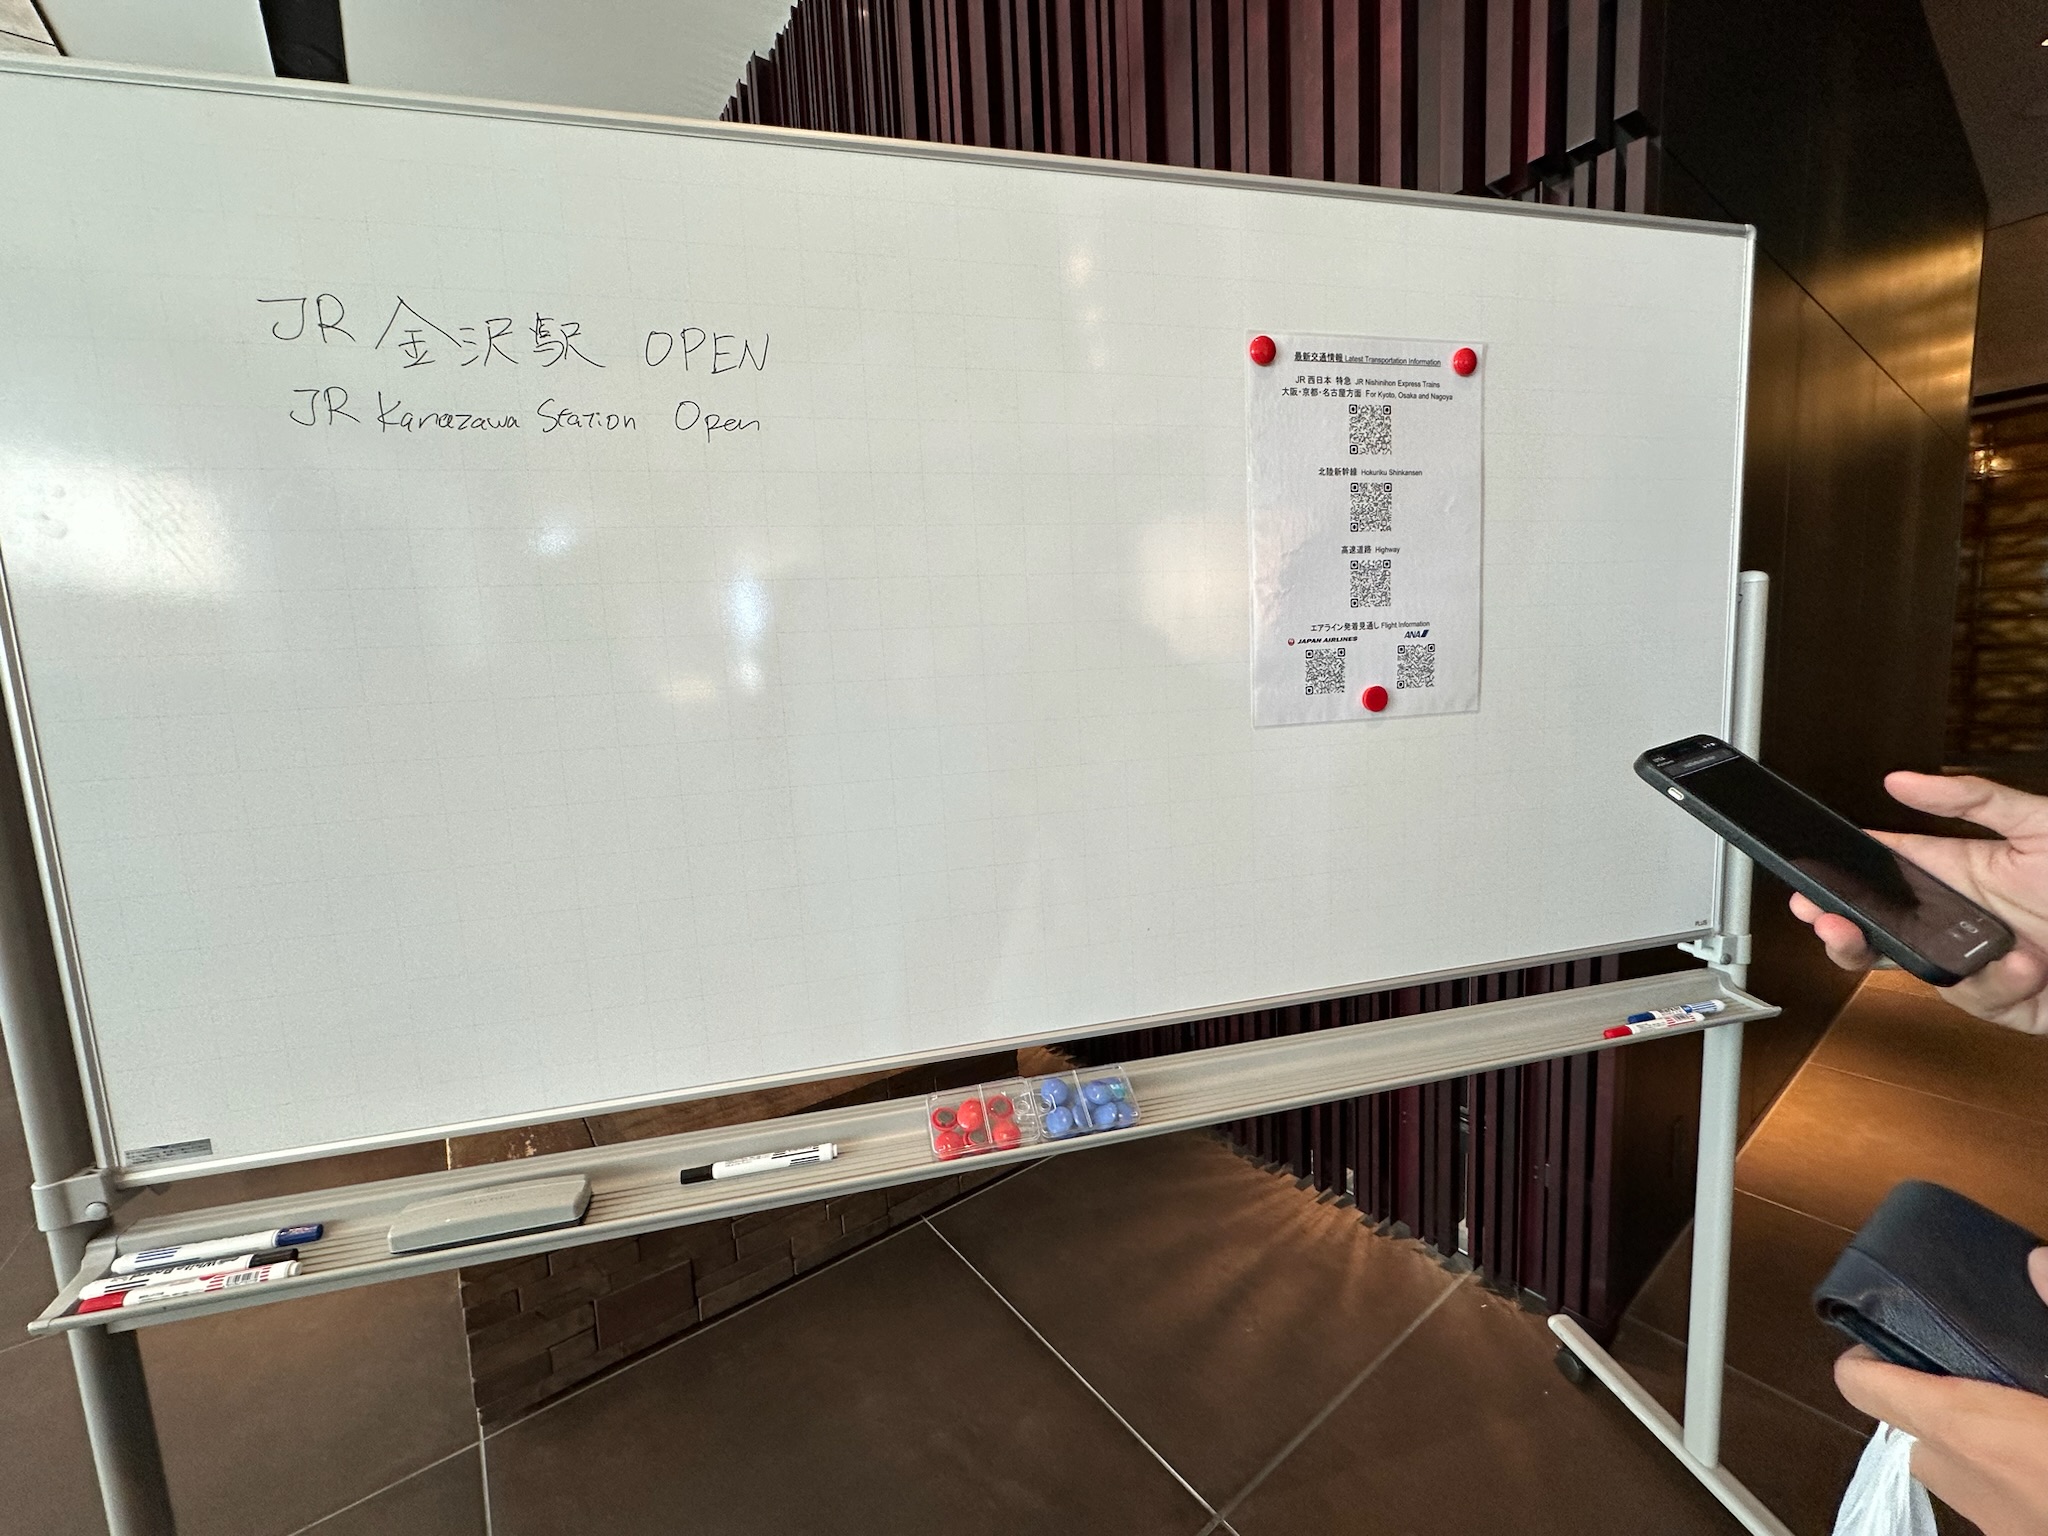 JR 金沢駅 OPEN
JR Kanazawa Station Open
最新交通情報 Latest Transportation Information
JR 西日本 特急 JR Nishinihon Express Trains
大阪・京都・名古屋方面 For Kyoto, Osaka and Nagoya
北陸新幹線 Hokuriku Shinkansen
高速道路 Highway
エアライン発着見通し Flight Information
JAPAN AIRLINES ANA
PLUS